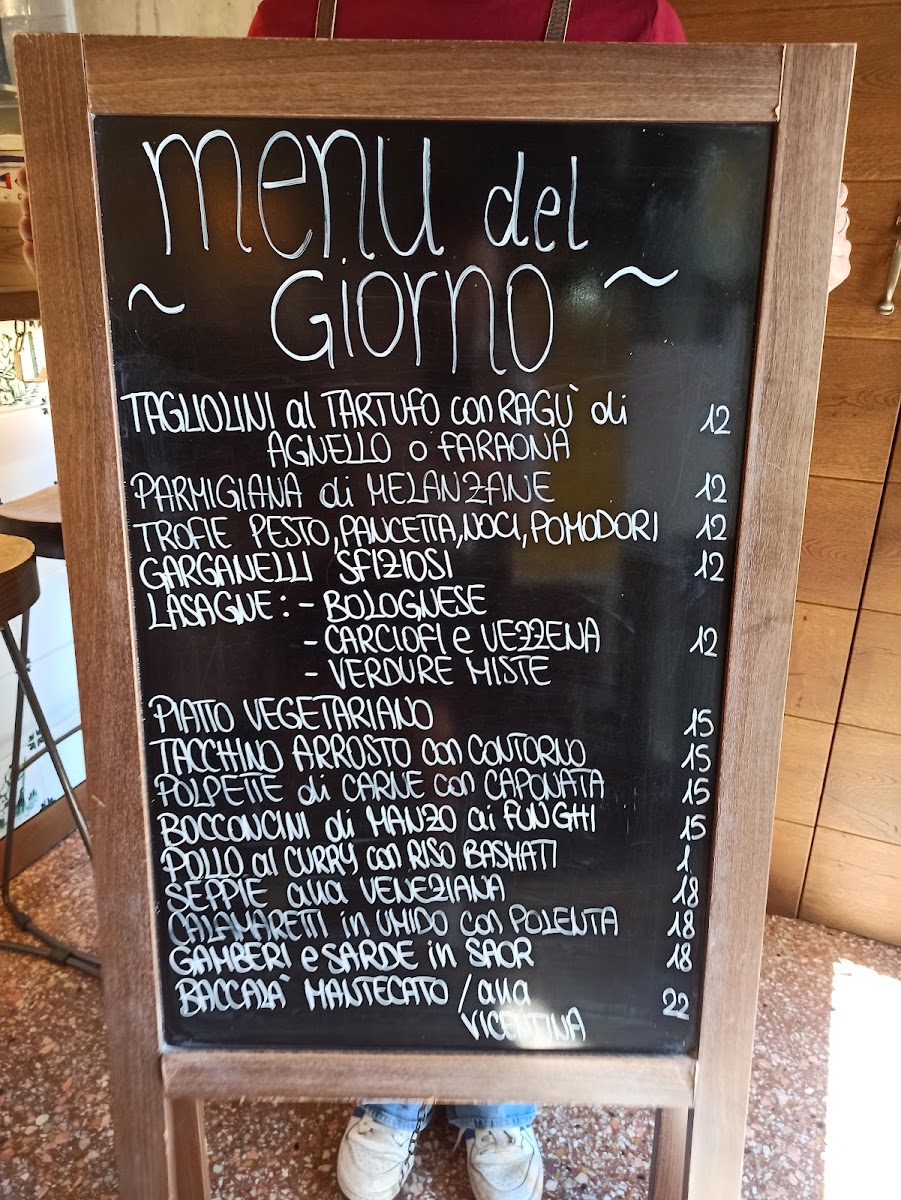 menu del
~ Giorno ~
TAGLIOLINI al TARTUFO con RAGÙ di 12
AGNELLO o FARAONA
PARMIGIANA di MELANZANE 12
TROFIE PESTO, PANCETTA, NOCI, POMODORI 12
GARGANELLI SFIZIOSI 12
LASAGNE: - BOLOGNESE
- CARCIOFI e VEZZENA 12
- VERDURE MISTE
PIATTO VEGETARIANO 15
TACCHINO ARROSTO con CONTORNO 15
POLPETTE di CARNE con CAPONATA 15
BOCCONCINI di MANZO ai FUNGHI 15
POLLO al CURRY con RISO BASMATI 1
SEPPIE alla VENEZIANA 18
CALAMARETTI in UMIDO con POLENTA 18
GAMBERI e SARDE in SAOR 18
BACCALÀ MANTECATO / alla 22
VICENTINA